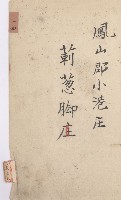 鳳山郡小港庄
薊葱脚庄